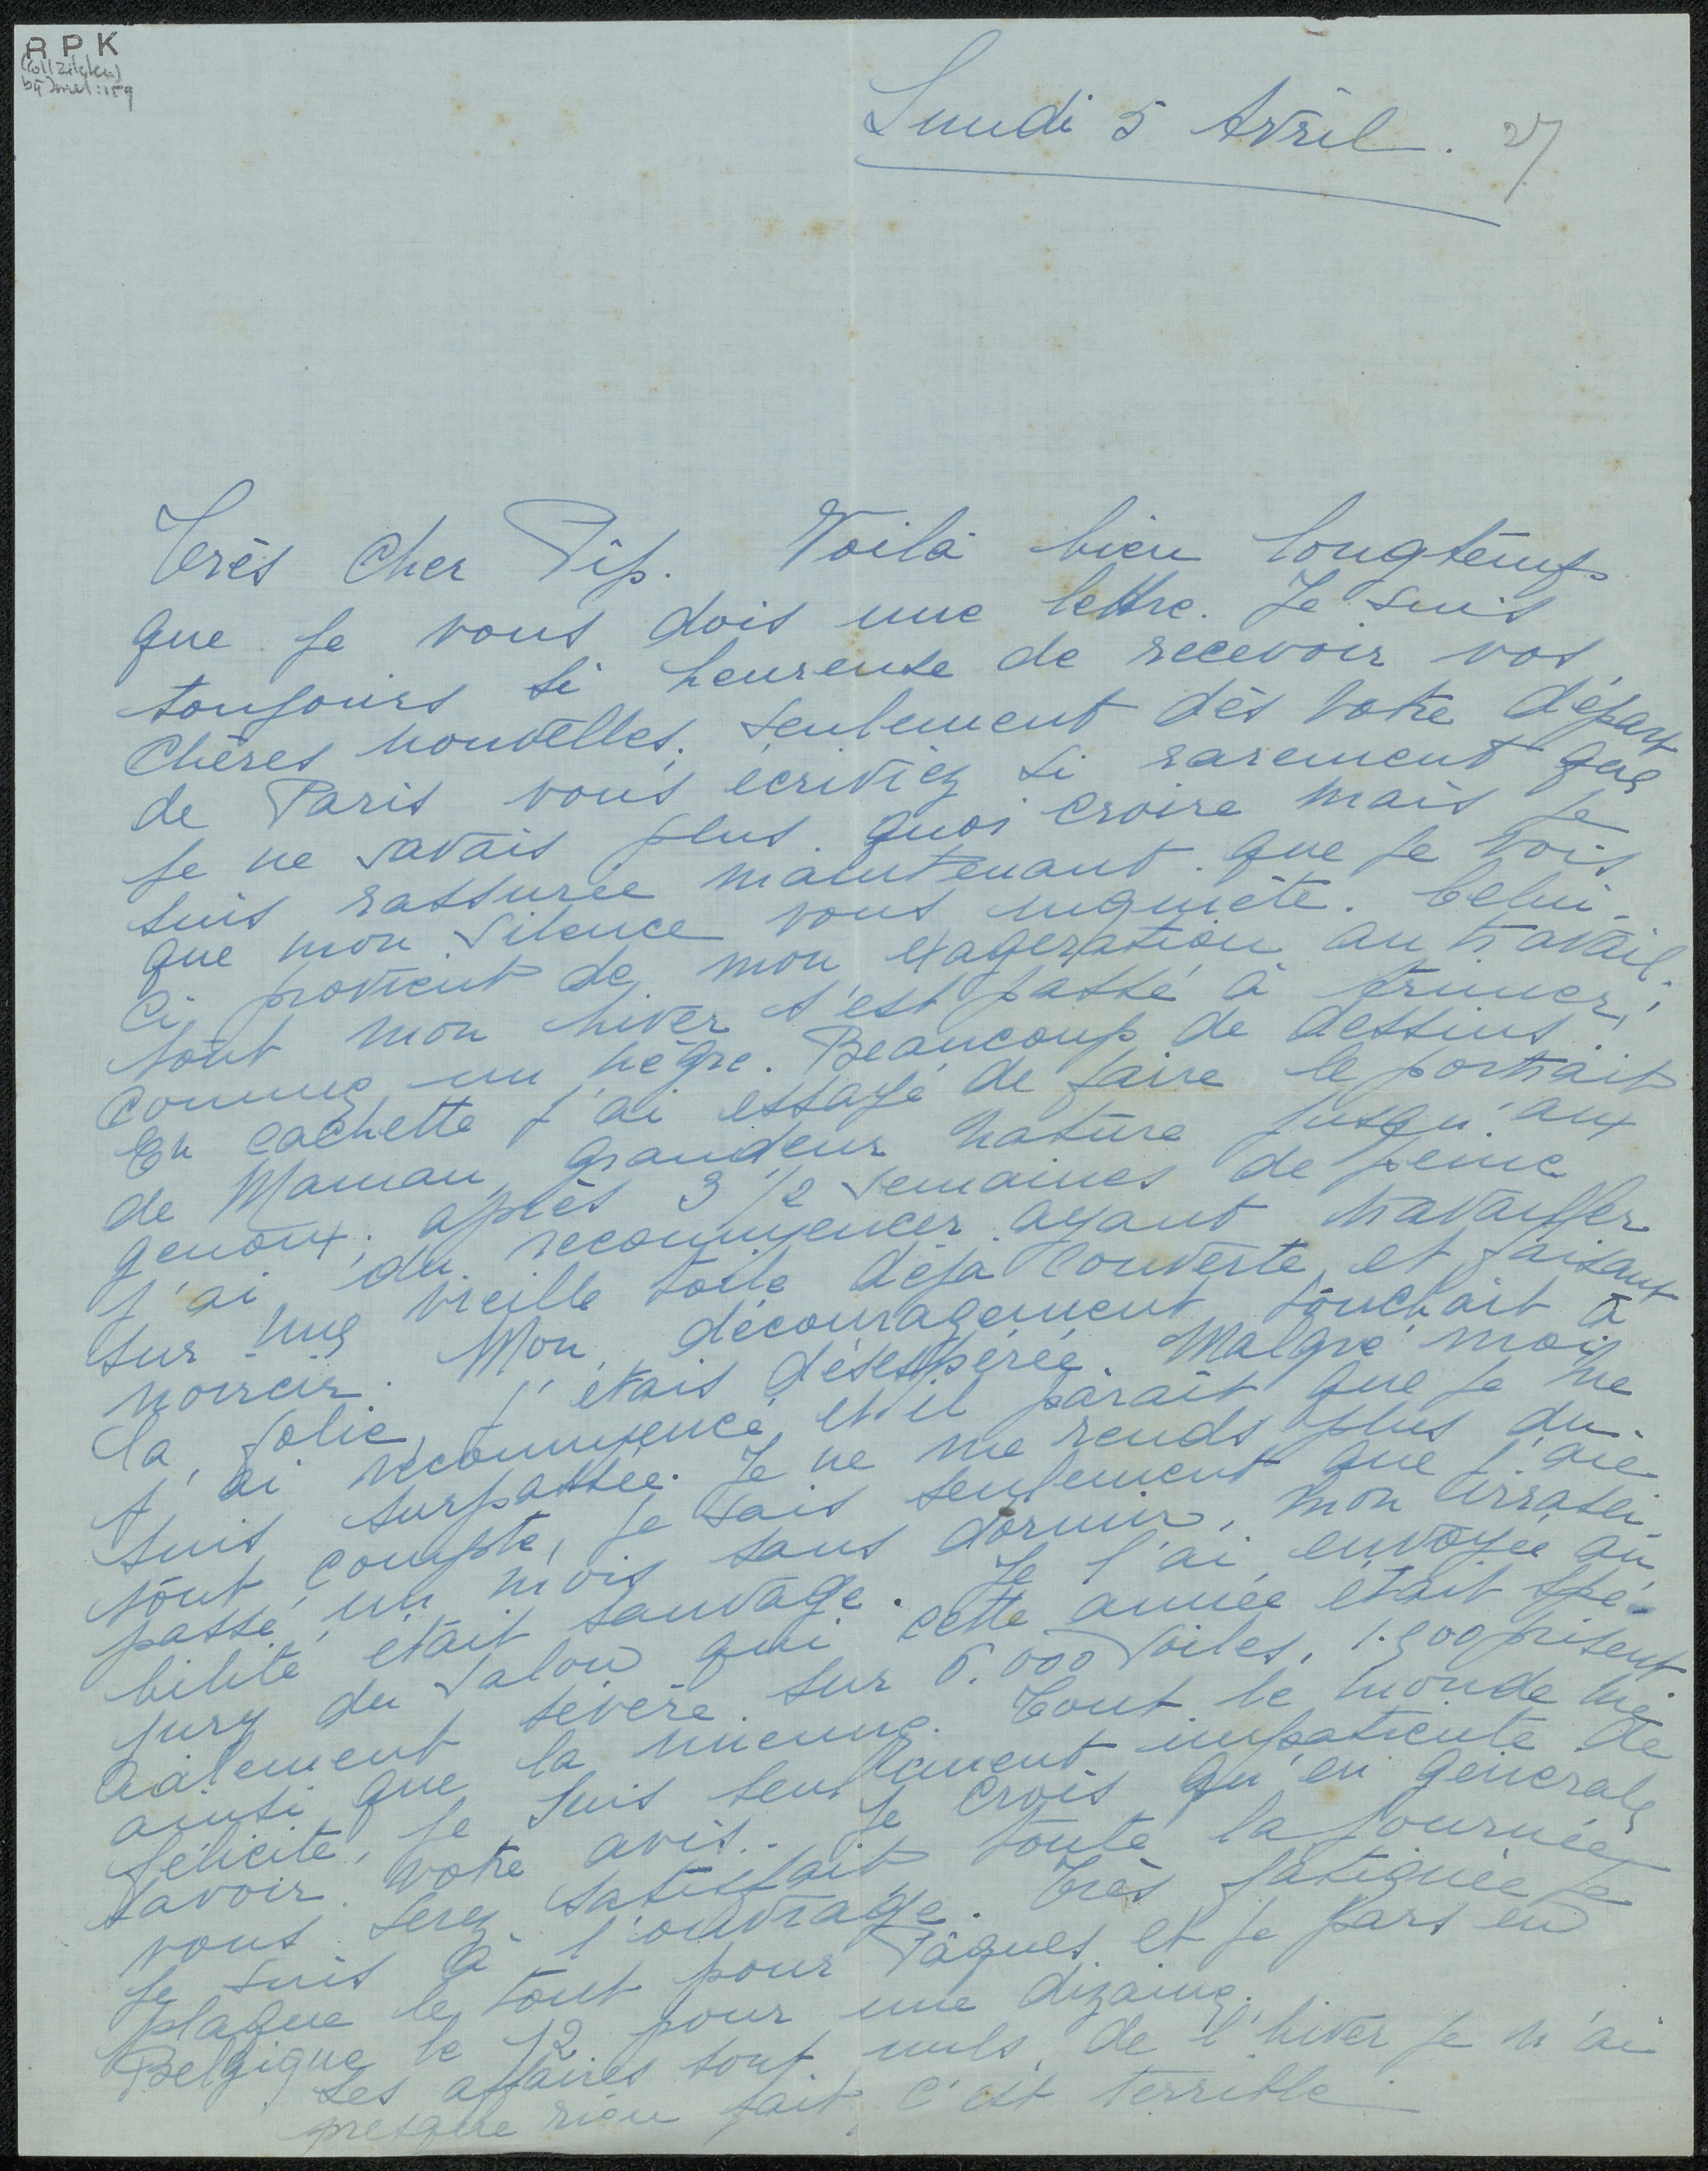 R P K
(Coll Zilcken)
Lundi 5 Avril. 27
Très Cher Pip. Voilà bien longtemps
que je vous dois une lettre. Je suis
toujours si heureuse de recevoir vos
Chères nouvelles; seulement dès votre départ
de Paris vous écriviez si rarement que
je ne savais plus quoi croire mais je
suis rassurée maintenant que je vois
que mon silence vous inquiète. Celui-
ci provient de mon exagération au travail;
tout mon hiver s'est passé à trimer,
comme un nègre. Beaucoup de dessins.
En cachette j'ai essayé de faire le portrait
de Maman, grandeur nature jusqu'aux
genoux; après 3 1/2 semaines de peine
j'ai du recommencer ayant travailler
sur une vieille toile déjà couverte et faisant
noircir. Mon découragement touchait à
la folie, j'étais désespérée. Malgré moi
j'ai recommencé et il parait que je me
suis surpassée. Je ne me rends plus du
tout compte, je sais seulement que j'aie
passé un mois sans dormir, mon irrasci-
bilité était sauvage. Je l'ai envoyée au
jury du Salon qui cette année était spé-
cialement sévère sur 6.000 toiles, 1.500 prisent
ainsi que la mienne. Tout le monde me
félicite, je suis seullement impatiente de
savoir votre avis. Je crois qu'en générale
vous serez satisfait, toute la journée
je suis à l'ouvrage. Très fatiguée je
plaque le tout pour Pâques et je pars en
Belgique le 12 pour une dizaine.
Les affaires sont nuls, de l'hiver je n'ai
presque rien fait, c'est terrible